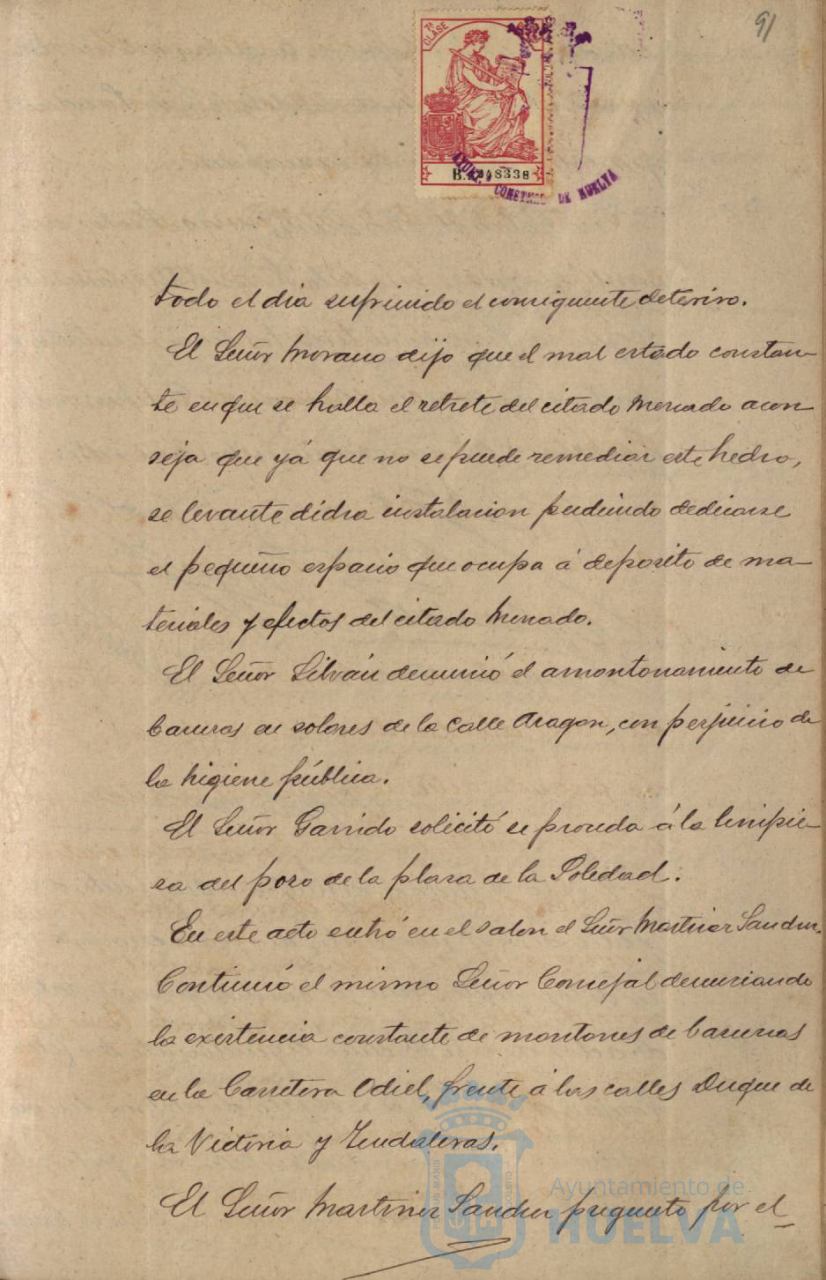 91
7ª CLASE
B.
8338
AYUN. CONSTNAL DE HUELVA
todo el dia sufriendo el consiguiente deterioro.
El Señor Morano dijo que el mal estado constan-
te en que se halla el retrete del citado Mercado acon
seja que yá que no se puede remediar este hedor,
se levante dicha instalacion pudiendo dedicarse
el pequeño espacio que ocupa á deposito de ma-
teriales y efectos del citado Mercado.
El Señor Silván denunció el amontonamiento de
basuras en solares de la calle Aragon, con perjuicio de
la higiene pública.
El Señor Garrido solicitó se proceda á la limpie-
sa del poso de la plasa de la Soledad.
En este acto entró en el salon el Señor Martines Sanches.
Continuó el mismo Señor Concejal denunciando
la existencia constante de montones de basuras
en la Carretera Odiel, frente á las calles Duque de
la Victoria y Tendaleras.
El Señor Martines Sanches preguntó por el
Ayuntamiento de
HUELVA